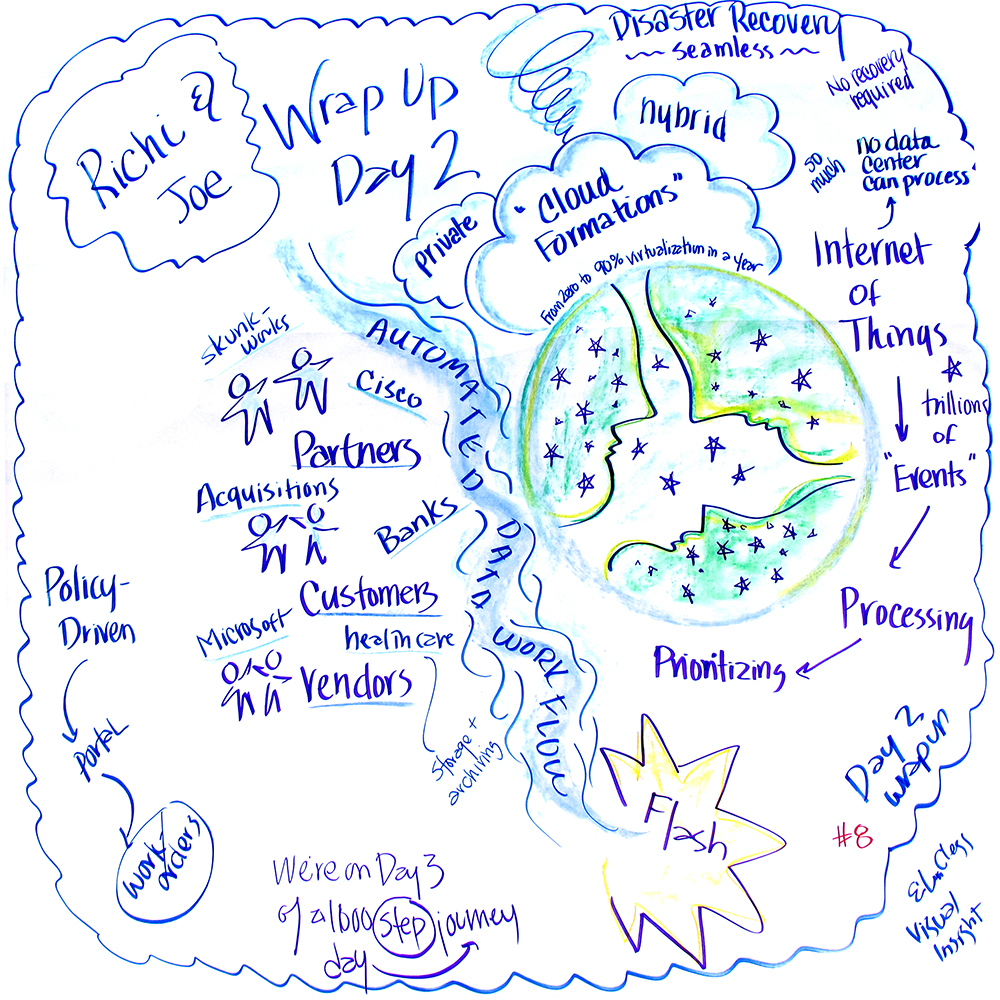 Richi &
Joe
Wrap Up
Day 2
Disaster Recovery
~ seamless ~
No recovery
required
hybrid
private
"Cloud
Formations"
From zero to 90% virtualization in a year
so
much
no data
center
can process
Internet
Of
Things
trillions
of
"Events"
Processing
Prioritizing
AUTOMATED DATA WORKFLOW
Skunk-
works
Cisco
Partners
Acquisitions
Banks
Customers
Microsoft
healthcare
Vendors
storage +
archiving
Policy-
Driven
Portal
work-
orders
Flash
We're on Day 3
of a 1000 step journey
day
Day 2
wrapup
#8
Visual
Insight